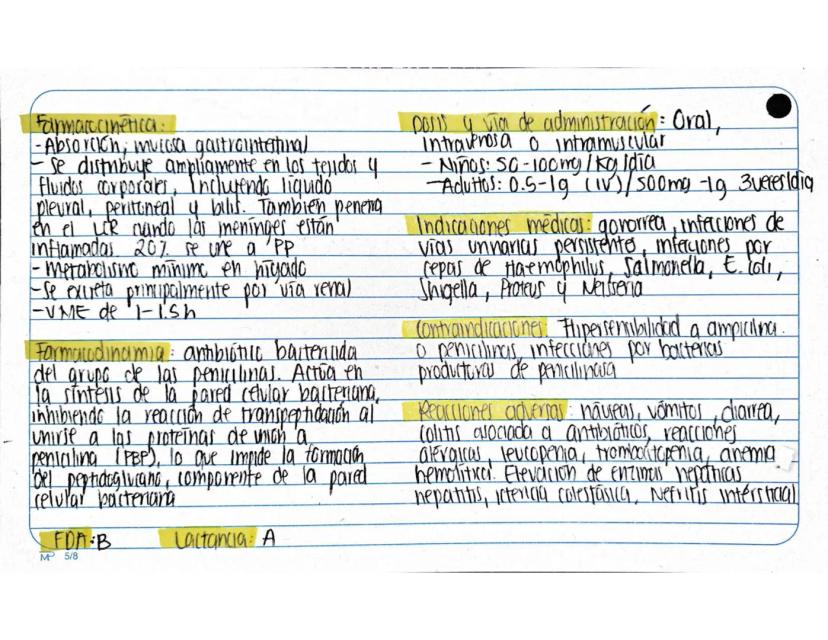 Farmacocinética:
- Absorción; mucosa gastrointestinal
- Se distribuye ampliamente en los tejidos y
fluidos corporales, incluyendo líquido
pleural, peritoneal y bilis. También penetra
en el LCR cuando las meninges están
inflamadas. 20% se une a PP
- Metabolismo mínimo en hígado
- Se excreta principalmente por vía renal
- VME de 1-1.5h
Farmacodinamia: antibiótico bactericida
del grupo de las penicilinas. Actúa en
la síntesis de la pared celular bacteriana,
inhibiendo la reacción de transpeptidación al
unirse a las proteínas de unión a
penicilina (PBP), lo que impide la formación
del peptidoglucano, componente de la pared
celular bacteriana
FDA: B Lactancia: A
MP 5/8
Dosis y vía de administración: Oral,
intravenosa o intramuscular
- Niños: 50-100mg/Kg/día
- Adultos: 0.5-1g (IV)/500mg-1g 3veces/día
Indicaciones médicas: gonorrea, infecciones de
vías urinarias persistente, infecciones por
cepas de Haemophilus, Salmonella, E. coli,
Shigella, Proteus y Neisseria
Contraindicaciones: Hipersensibilidad a ampicilina
o penicilinas, infecciones por bacterias
productoras de penicilinasa
Reacciones adversas: náuseas, vómitos, diarrea,
colitis asociada a antibióticos, reacciones
alérgicas, leucopenia, trombocitopenia, anemia
hemolítica. Elevación de enzimas hepáticas
hepatitis, ictericia colestásica, Nefritis intersticial